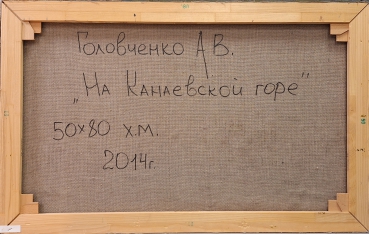 Головченко А В.
„На Канаевской горе"
50х80 х.м.
2014г.